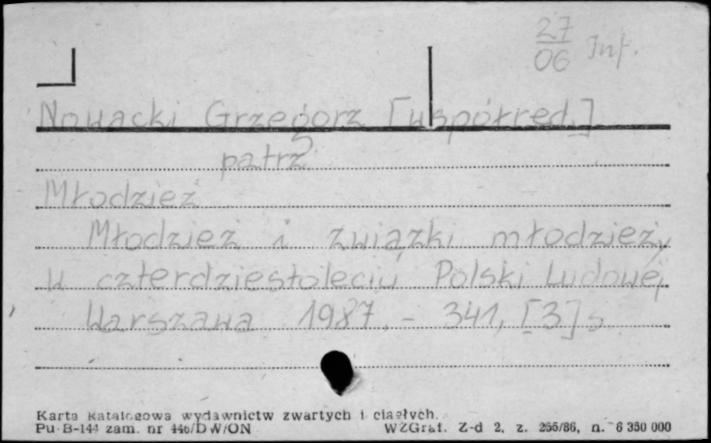 27
06 Inf.
Nowacki Grzegorz [współred.]
patrz
Młodzież
Młodzież i związki młodzieży
w czterdziestoleciu Polski Ludowej
Warszawa 1987. - 341, [3] s
Karta katalogowa wydawnictw zwartych i ciągłych.
Pu B-144 zam. nr 446/DW/ON WZGraf. Z-d 2, z. 255/86, n. 6 350 000